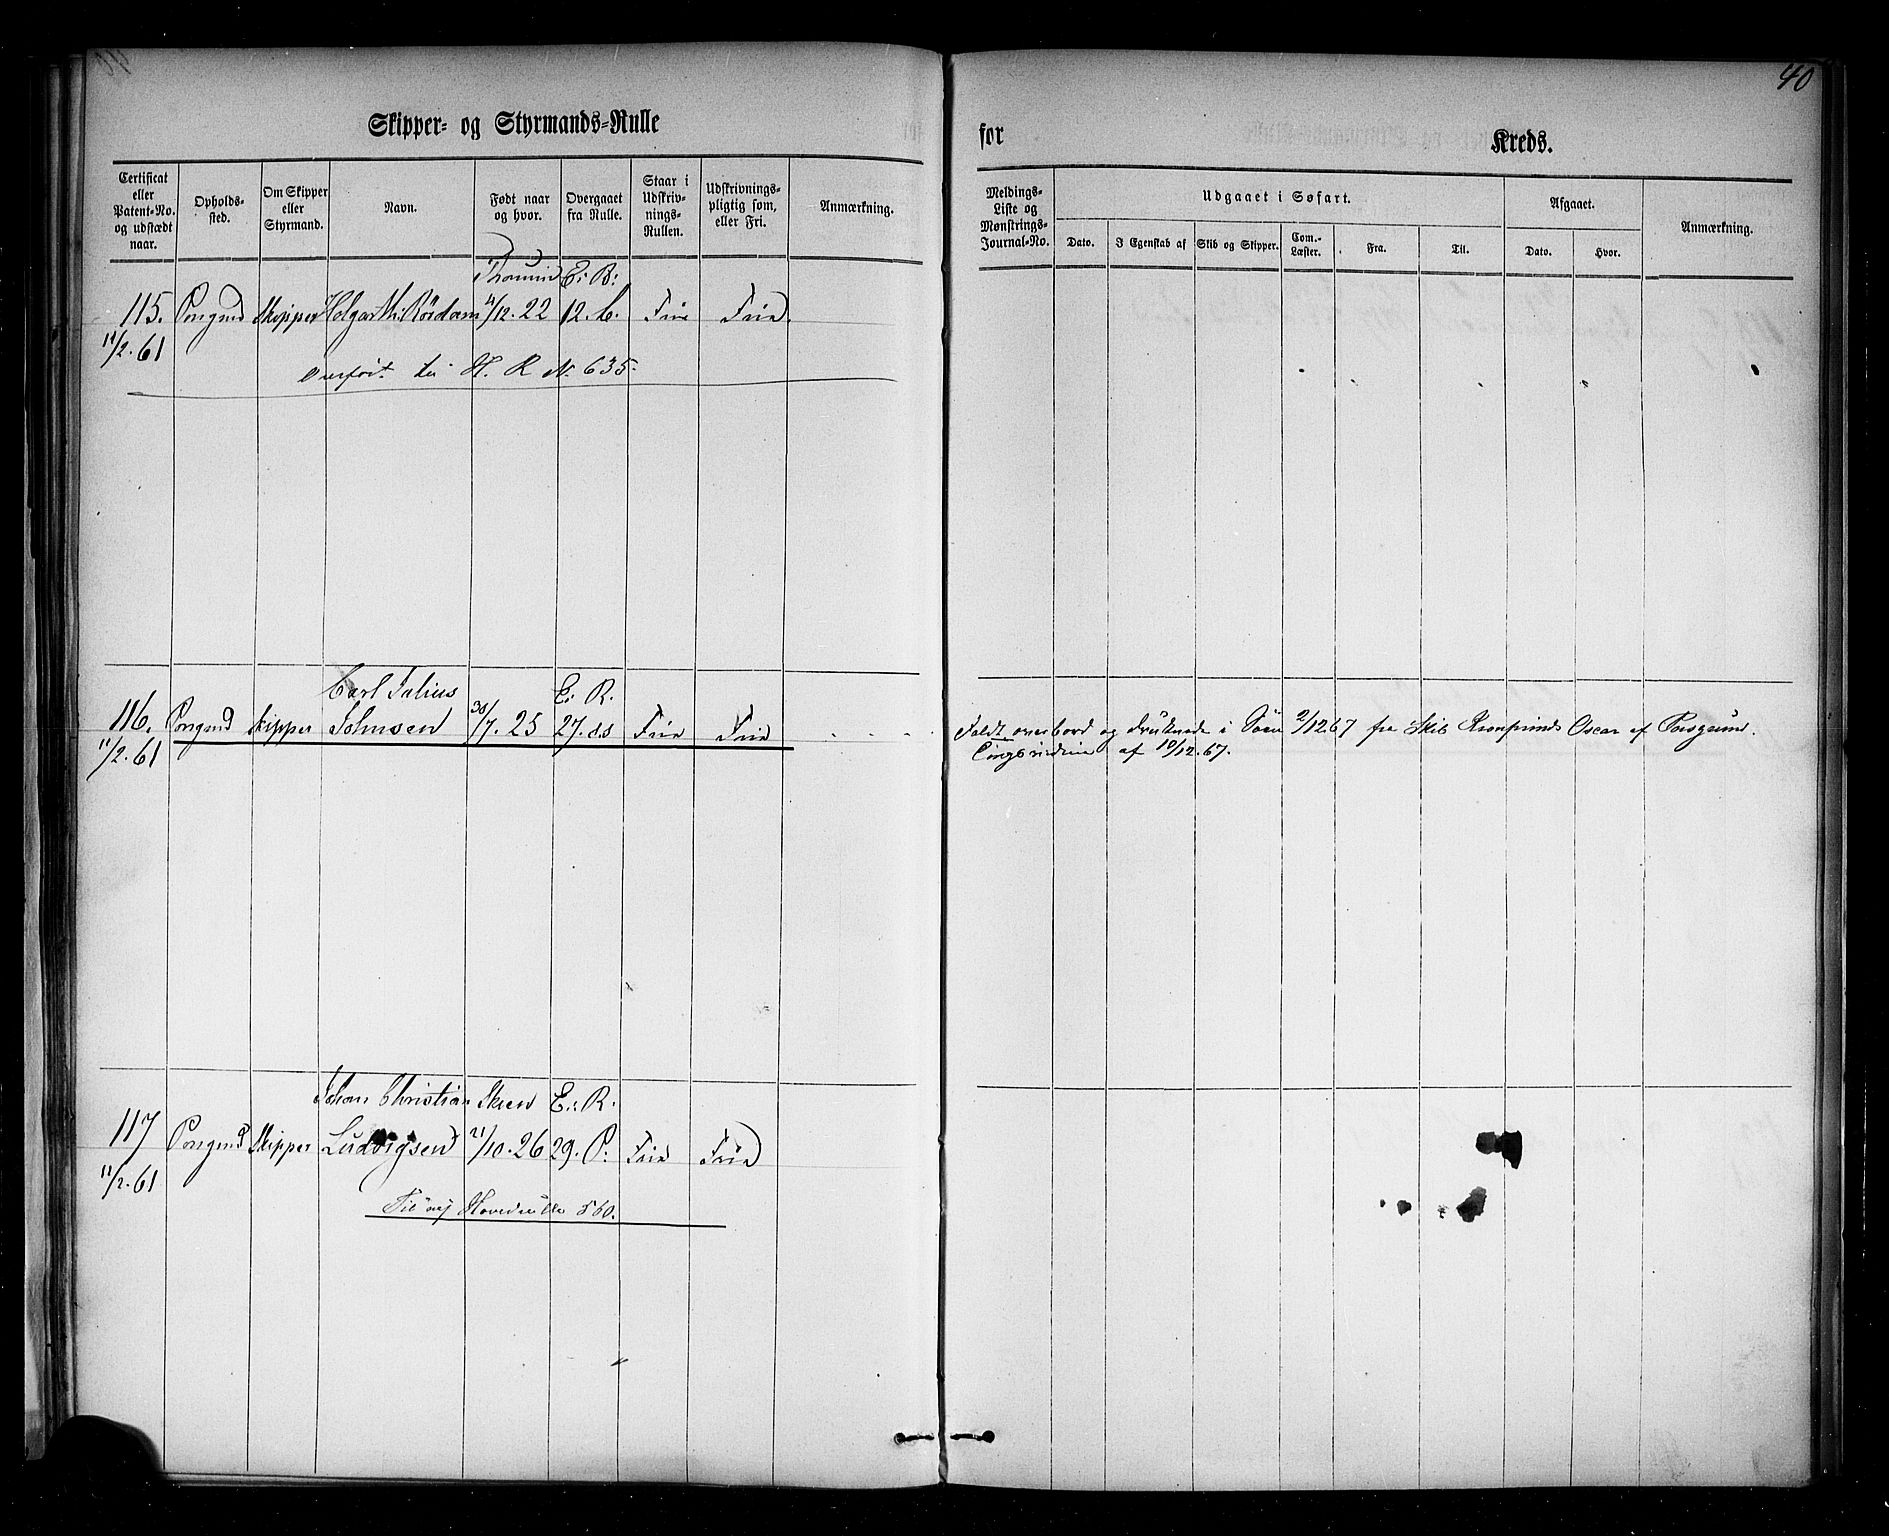 40
Skipper- og Styrmands-Rulle
for
Kreds.
Certifikat eller Patent-No. og udstædt naar.
Opholdssted.
Om Skipper eller Styrmand.
Navn.
Født naar og hvor.
Overgaaet fra Rulle.
Staar i Udskrivnings-Rullen.
Udskrivningspligtig som, eller Fri.
Anmærkning.
Meldings-Liste og Mønstrings-Journal-No.
Udgaaet i Søfart.
Dato.
I Egenskab af
Skib og Skipper.
Com.-Læster.
Fra.
Til.
Afgaaet.
Dato.
Hvor.
Anmærkning.
E: R:
115. Porsgrund Skipper Holgar M. Rördam 4/12.22 12. b. Frie Frie.
11/2.61
Overført til H. R No. 635.
Carl Julius E: R.
116. Porsgrund Skipper Johnsen 30/7.25 27. ds Frie Frie
11/2.61
Faldt overbord og druknede i Søen 2/12.67 fra Skib Kronprinds Oscar af Porsgrund.
af 10/12.67.
Johan Christian Skien E: R.
117 Porsgrund Skipper Ludvigsen 21/10.26 29. P: Frie Frie
11/2.61
Hovedrulle 560.